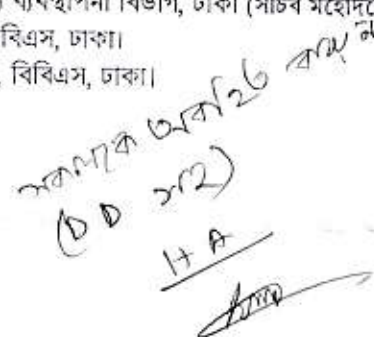 ব্যবস্থাপনা বিভাগ, ঢাকা (সচিব মহোদয়ে
বিএস, ঢাকা।
, বিবিএস, ঢাকা।
সকলকে অবহিত করুন
(DD সহ)
HA